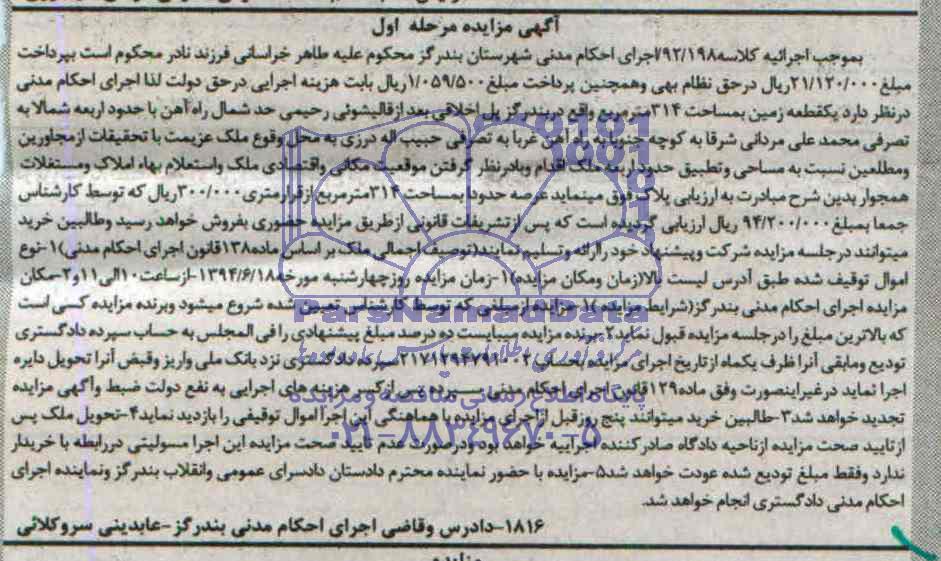 آگهی مزایده مرحله اول
بموجب اجرائیه کلاسه ۹۲/۱۹۸/اجرای احکام مدنی شهرستان بندرگز محکوم علیه طاهر خراسانی فرزند نادر محکوم است بپرداخت
مبلغ ۲۱/۱۲۰/۰۰۰ریال درحق نظام بهی وهمچنین پرداخت مبلغ ۱/۰۵۹/۵۰۰ریال بابت هزینه اجرایی درحق دولت لذا اجرای احکام مدنی
درنظر دارد یکقطعه زمین بمساحت ۳۱۴مترمربع واقع دربندرگز پل اخلاقی بعد ازقالیشوئی رحیمی حد شمال راه آهن با حدود اربعه شمالا به
تصرفی محمد علی مردانی شرقا به کوچه جنوبا به راه آهن غربا به تصرفی حبیب اله درزی به محل وقوع ملک عزیمت با تحقیقات ازمجاورین
ومطلعین نسبت به مساحی وتطبیق حدود اربعه ملک اقدام وبادرنظر گرفتن موقعیت مکانی واقتصادی ملک واستعلام بهاء املاک ومستغلات
همجوار بدین شرح مبادرت به ارزیابی پلاک فوق مینماید عرصه حدودا بمساحت ۳۱۴مترمربع ازقرارمتری ۳۰۰/۰۰۰ریال که توسط کارشناس
جمعا بمبلغ ۹۴/۲۰۰/۰۰۰ ریال ارزیابی گردیده است که پس ازتشریفات قانونی ازطریق مزایده حضوری بفروش خواهد رسید وطالبین خرید
میتوانند درجلسه مزایده شرکت وپیشنهاد خود را ارائه وتسلیم نمایند(توصیف اجمالی ملک بر اساس ماده۱۳۸قانون اجرای احکام مدنی)۱-نوع
اموال توقیف شده طبق آدرس لیست بالا(زمان ومکان مزایده)۱-زمان مزایده روزچهارشنبه مورخه۱۳۹۴/۶/۱۸-ازساعت۱۰الی۱۱و۲-مکان
مزایده اجرای احکام مدنی بندرگز(شرایط مزایده)۱-مزایده ازمبلغی که توسط کارشناسی تعیین شده شروع میشود وبرنده مزایده کسی است
که بالاترین مبلغ را درجلسه مزایده قبول نماید۲-برنده مزایده میبایست ده درصد مبلغ پیشنهادی را فی المجلس به حساب سپرده دادگستری
تودیع ومابقی آنرا ظرف یکماه ازتاریخ اجرای مزایده بحساب ۲۱۷۱۲۹۴۷۹۱۰۰۲سپرده دادگستری نزد بانک ملی واریز وقبض آنرا تحویل دایره
اجرا نماید درغیراینصورت وفق ماده۱۲۹قانون اجرای احکام مدنی سپرده پس ازکسر هزینه های اجرایی به نفع دولت ضبط وآگهی مزایده
تجدید خواهد شد۳-طالبین خرید میتوانند پنج روزقبل ازاجرای مزایده با هماهنگی این اجرا اموال توقیفی را بازدید نماید۴-تحویل ملک پس
ازتایید صحت مزایده ازناحیه دادگاه صادرکننده اجراییه خواهد بود ودرصورت عدم تایید صحت مزایده این اجرا مسولیتی دررابطه با خریدار
ندارد وفقط مبلغ تودیع شده عودت خواهد شد۵-مزایده با حضور نماینده محترم دادستان دادسرای عمومی وانقلاب بندرگز ونماینده اجرای
احکام مدنی دادگستری انجام خواهد شد.
۱۸۱۶-دادرس وقاضی اجرای احکام مدنی بندرگز-عابدینی سروکلائی
ParsNamadData
پایگاه اطلاع رسانی مناقصه و مزایده
۰۲۱-۸۸۳۴۹۶۷۰-۵
مزایده